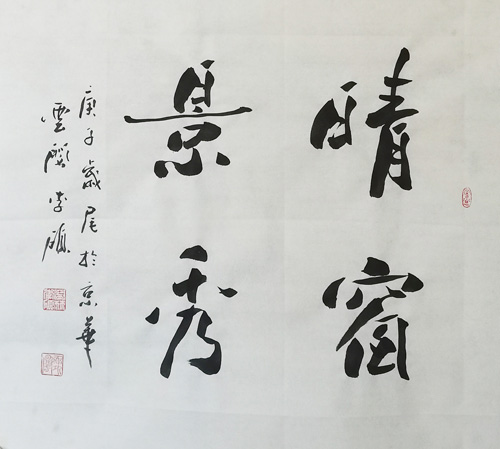 晴窗
景秀
庚子歲尾於京華
雲 李